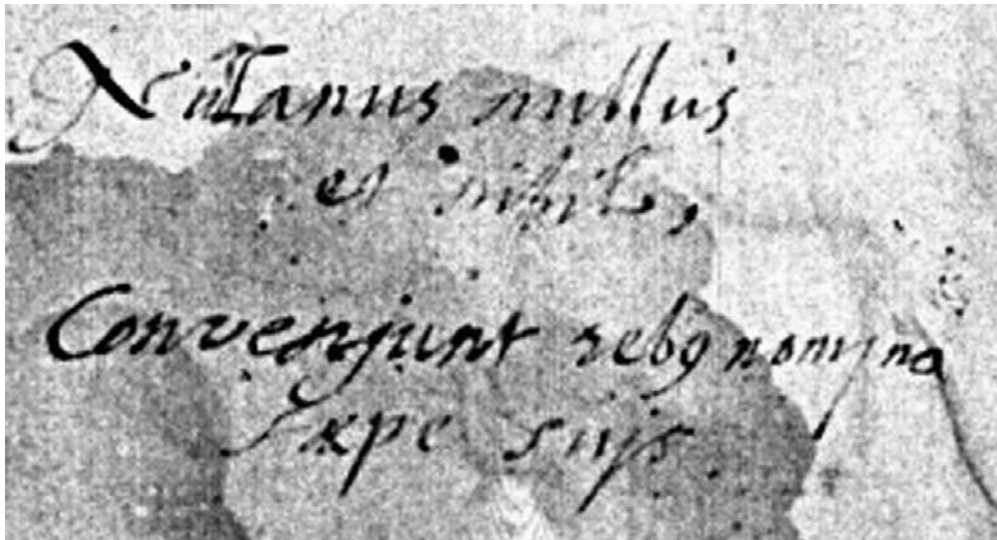 Nullanus nullus
et nihil,
Convenjunt rebꝰ nomjna
sæpe sujs.